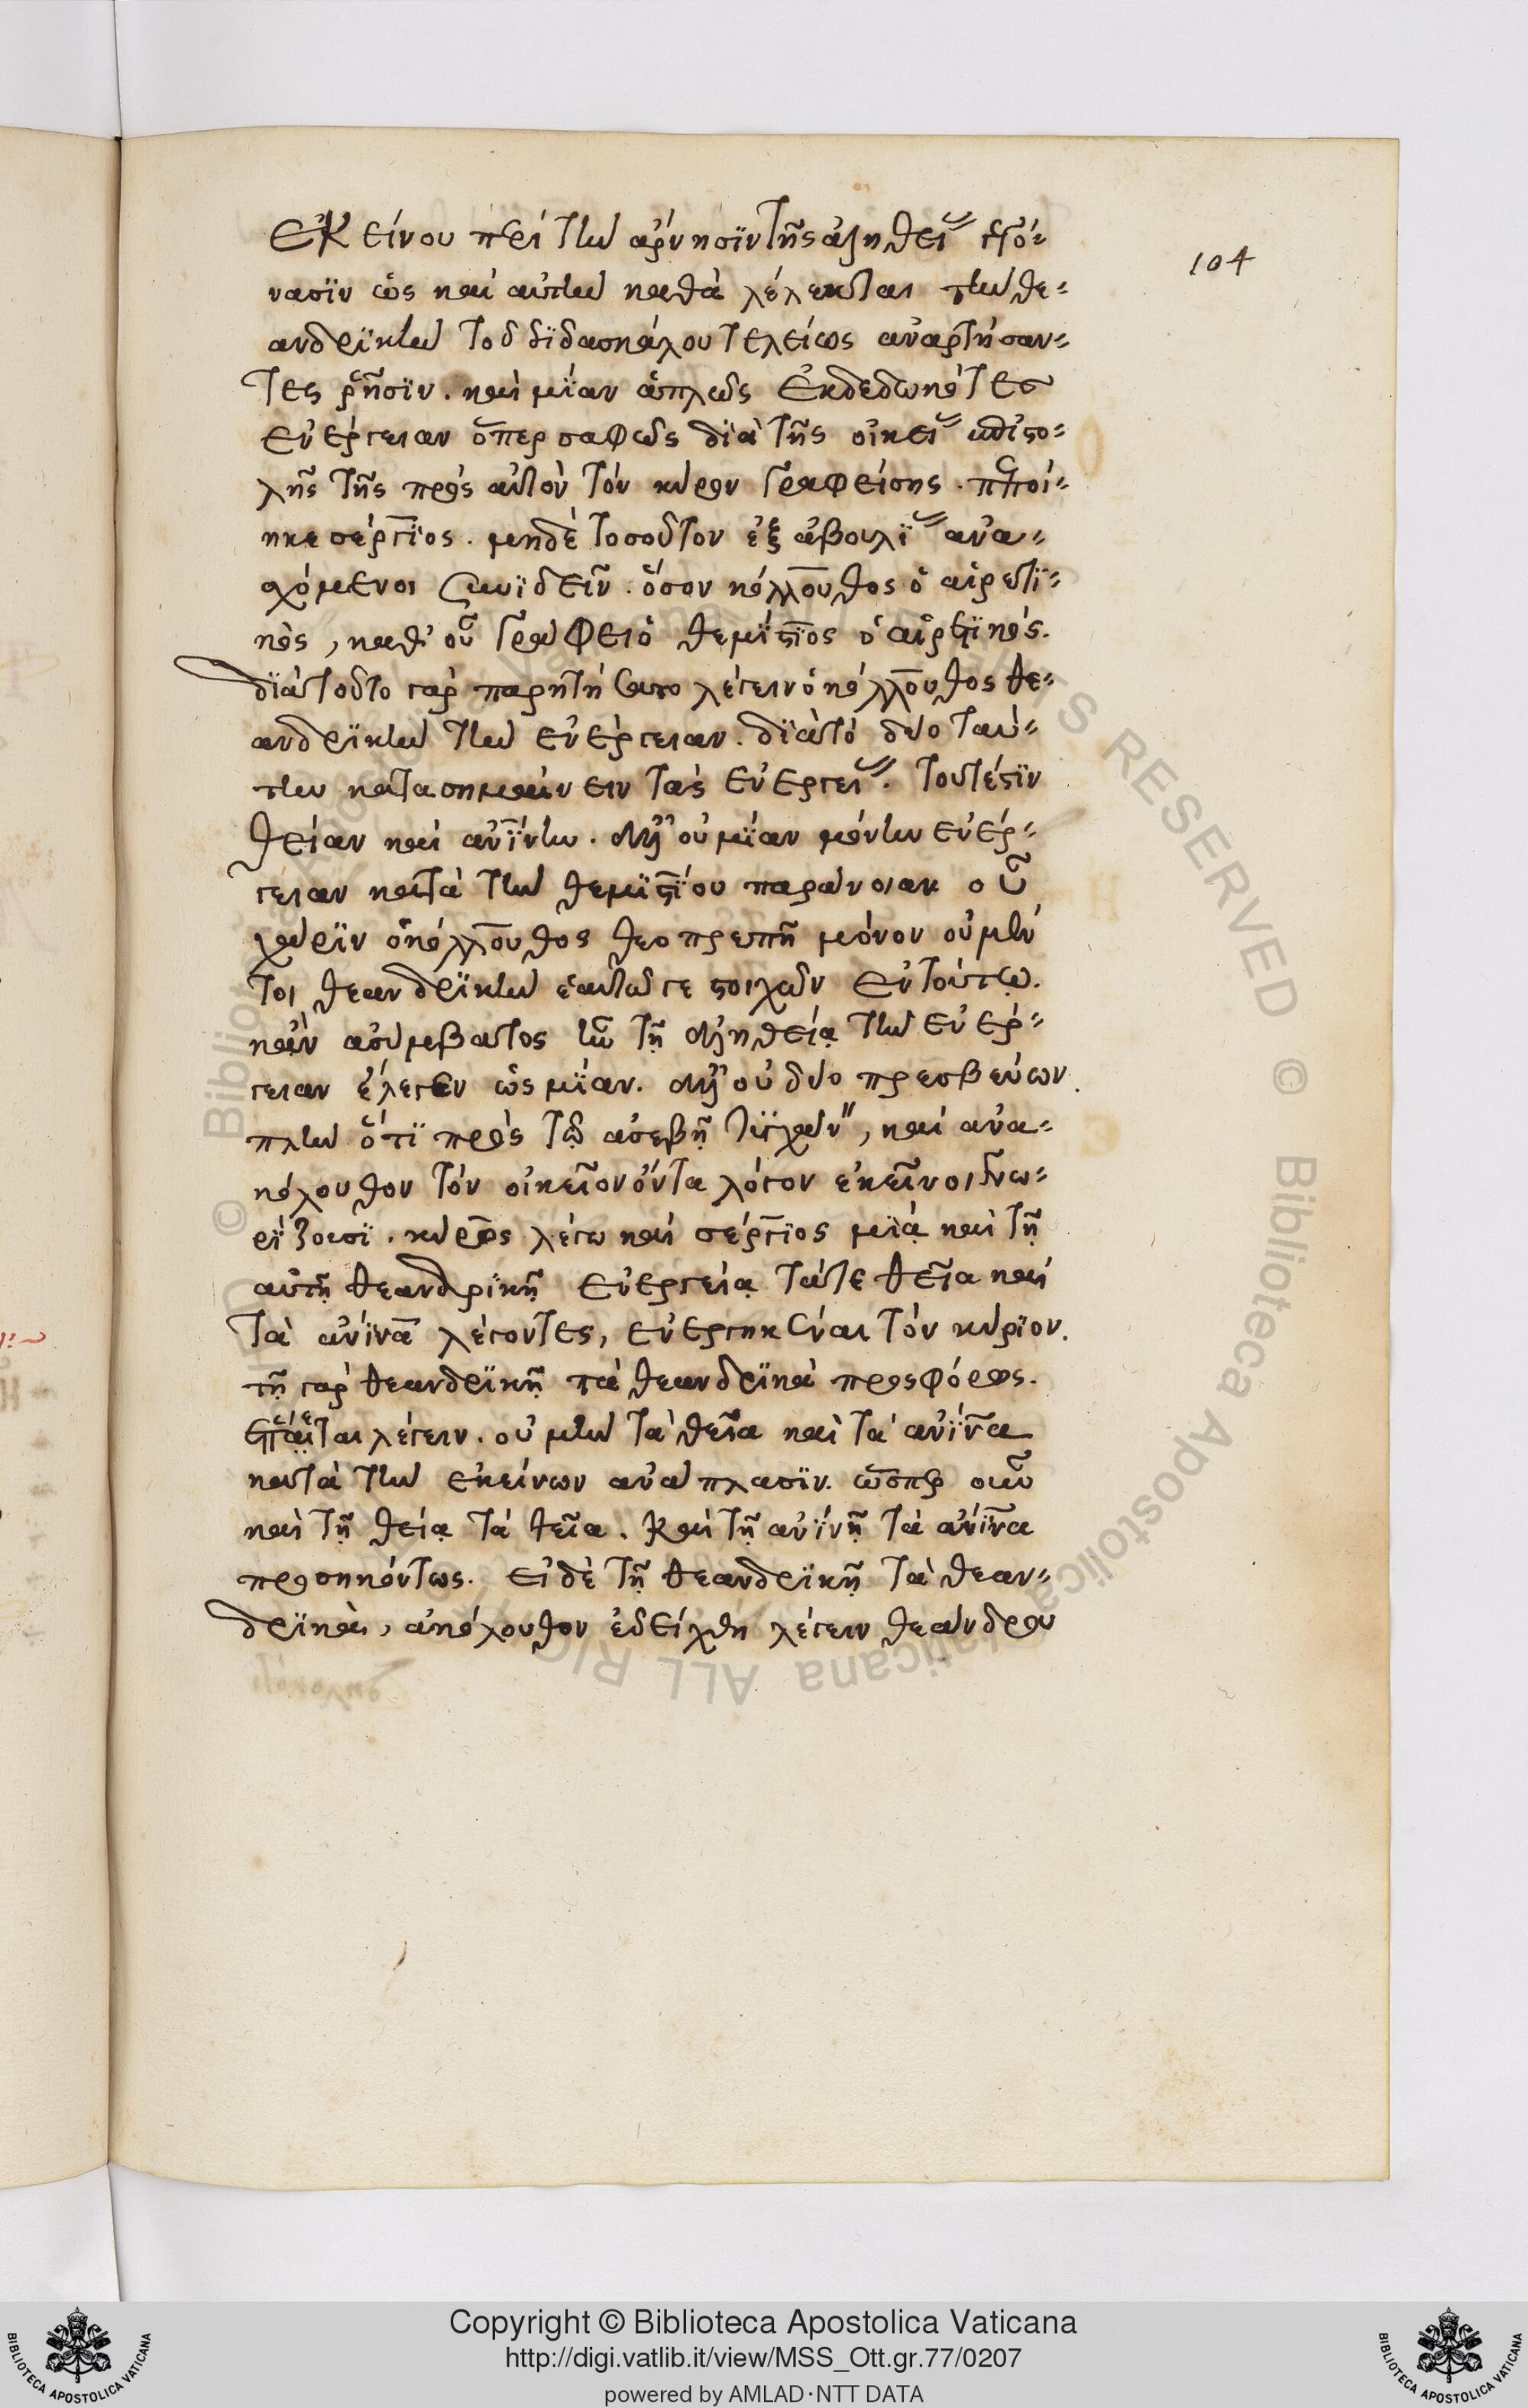 104
ἐκείνου περὶ τὴν ἄρνησϊν τῆς ἀληθεί(ας) γεγό-
νασϊν ὡς καὶ αὐτὴν καθὰ λέλεκται τὴν θε-
ανδρϊκὴν τοῦ δϊδασκάλου τελείως ἀναρτήσαν-
τες ῥῆσϊν. καὶ μΐαν ἁπλῶς ἐκδεδωκότες
ἐνέργειαν ὅπερ σαφῶς δϊὰ τῆς οἰκεί(ας) ἐπϊστο-
λῆς τῆς πρὸς αὐτὸν τὸν κύρον γραφείσης. πεποί-
ηκε σέργϊος. μηδὲ τοσοῦτον ἐξ ἀβουλί(ας) ἀνα-
σχόμενοι συνϊδεῖν. ὅσον κόλλουθος ὁ αἱρετϊ-
κὸς, καθ' οὗ γράφει ὁ θεμΐστϊος ὁ αἱρετϊκός.
δϊὰ τοῦτο γὰρ παρῃτήσατο λέγειν ὁ κόλλουθος θε-
ανδρϊκὴν τὴν ἐνέργειαν. δϊὰ τὸ δύο ταύ-
την κατασημαίνειν τὰς ἐνεργεί(ας). τουτέστϊν
θείαν καὶ ἀν(θρωπ)ΐνην. ἀλλ' οὐ μΐαν μόνην ἐνέρ-
γειαν κατὰ τὴν θεμϊστΐου παράνοιαν οὗ
χάρϊν ὁ κόλλουθος θεοπρεπῆ μόνον οὐ μέν
τοι θεανδρϊκὴν ἑαυτῷ γε στοιχῶν ἐν τούτῳ.
κἂν ἀσύμβατος ἦν τῇ ἀληθείᾳ τὴν ἐνέρ-
γειαν ἔλεγεν ὡς μΐαν. ἀλλ' οὐ δύο πρεσβεύων.
πλὴν ὅτϊ πρὸς τῷ ἀσεβῆ τυγχάν(ειν), καὶ ἀνα-
κόλουθον τὸν οἰκεῖον ὄντα λόγον ἐκεῖνοι γνω-
ρΐζουσϊ. κύρος λέγω καὶ σέργϊος μϊᾷ καὶ τῇ
αὐτῇ θεανδρϊκῇ ἐνεργείᾳ τά τε θεῖα καὶ
τὰ ἀν(θρώπ)ϊνα λέγοντες, ἐνεργηκέναι τὸν κύρϊον.
τῇ γὰρ θεανδρϊκῇ τὰ θεανδρϊκὰ προσφόρως.
λέγειν. οὐ μὴν τὰ θεῖα καὶ τὰ ἀν(θρώπ)ϊνα
κατὰ τὴν ἐκείνων ἀνάπλασϊν. ὥσπερ οὖν
καὶ τῇ θείᾳ τὰ θεῖα. καὶ τῇ ἀν(θρωπ)ΐνῃ τὰ ἀν(θρώπ)ϊνα
προσηκόντως. εἰ δὲ τῇ θεανδρϊκῇ τὰ θεαν-
δρϊκὰ, ἀκόλουθον ἐδείχθη λέγειν θεάνδρου
Copyright © Biblioteca Apostolica Vaticana
http://digi.vatlib.it/view/MSS_Ott.gr.77/0207
powered by AMLAD·NTT DATA